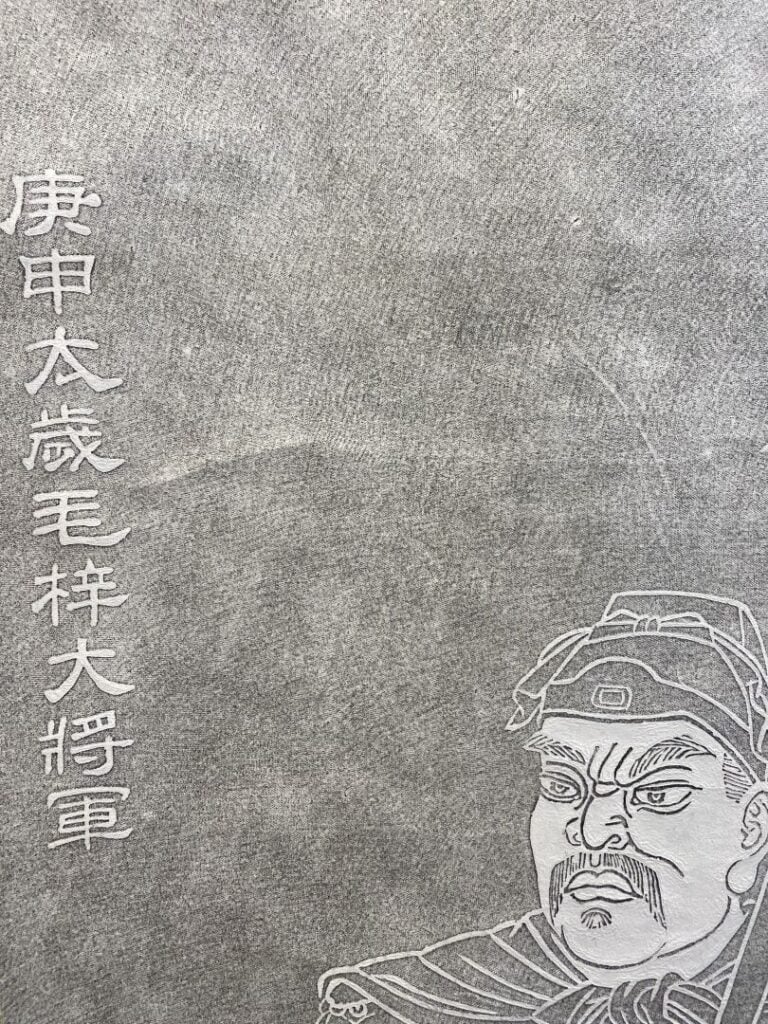 庚申太歲毛梓大將軍